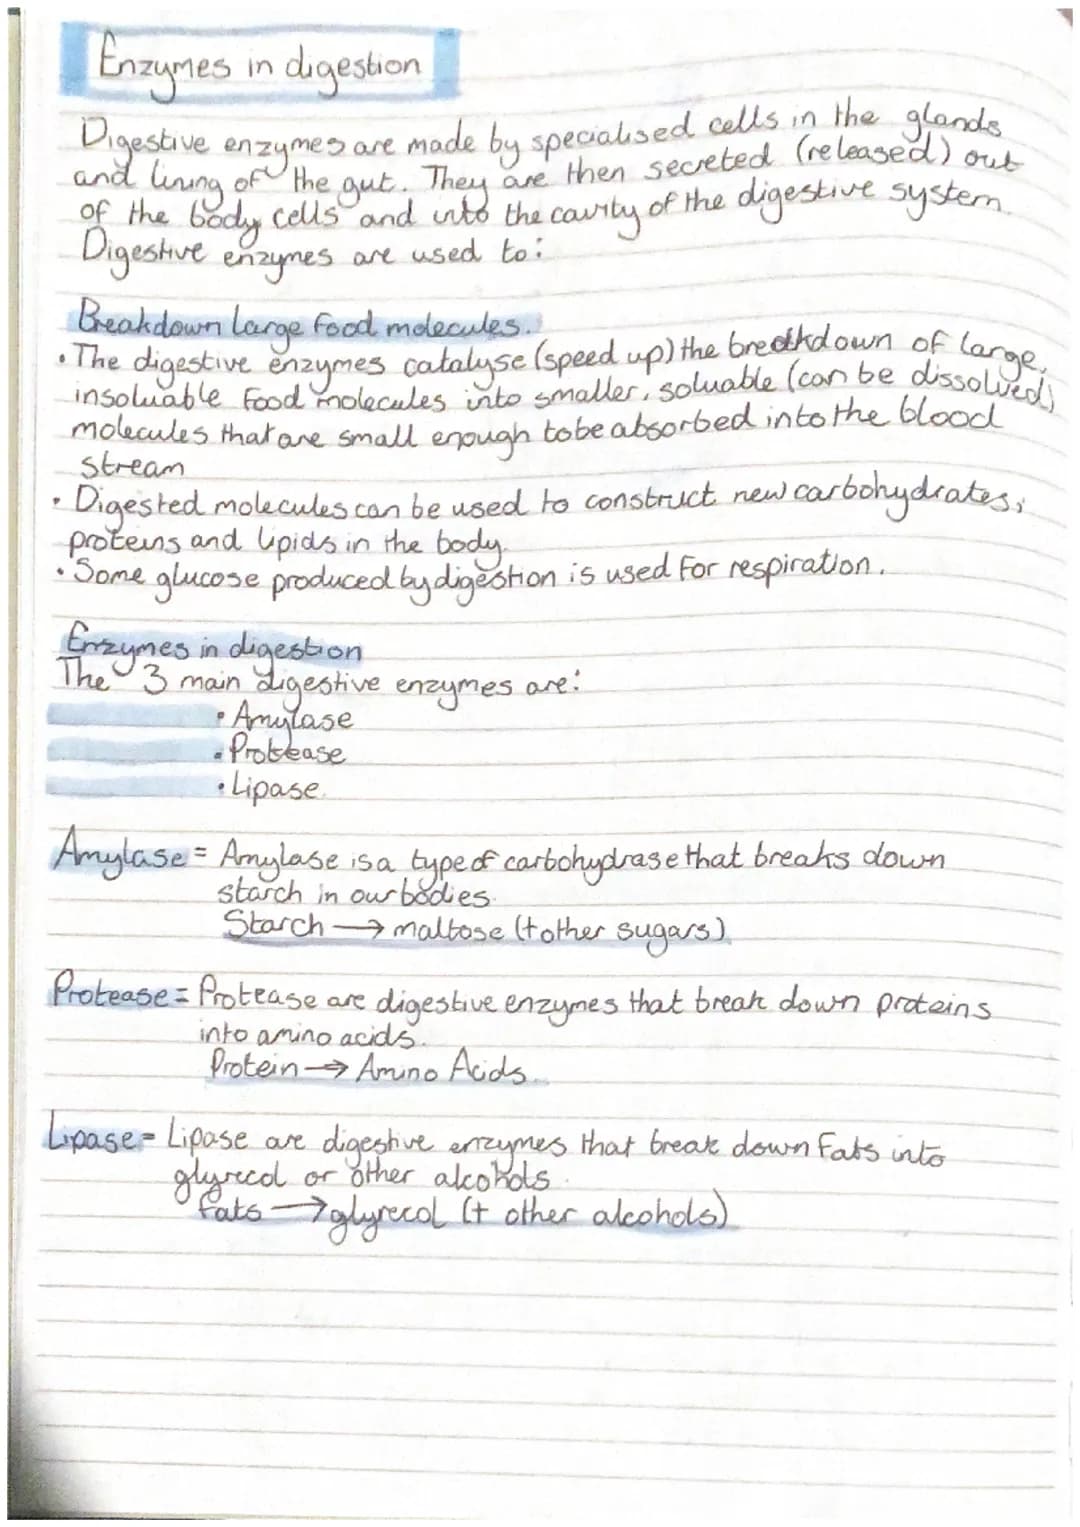 Enzymes in digestion
Digestive enzymes are made by specialised cells in the glands
and lining of the gut. They are then secreted (released) out
of the body cells and into the cavity of the digestive system.
Digestive enzymes are used to:
Breakdown large food molecules.
• The digestive enzymes catalyse (speed up) the breakdown of large,
insoluable food molecules into smaller, soluable (can be dissolved)
molecules that are small enough to be absorbed into the blood
stream
• Digested molecules can be used to construct new carbohydrates,
proteins and lipids in the body.
• Some glucose produced by digestion is used for respiration.
Enzymes in digestion
The 3 main digestive enzymes are:
• Amylase
• Protease
• Lipase.
Amylase = Amylase is a type of carbohydrase that breaks down
starch in our bodies.
Starch → maltose (+ other sugars)
Protease = Protease are digestive enzymes that break down proteins
into amino acids.
Protein → Amino Acids.
Lipase = Lipase are digestive enzymes that break down fats into
glyrecol or other alcohols.
fats → glyrecol (+ other alcohols)